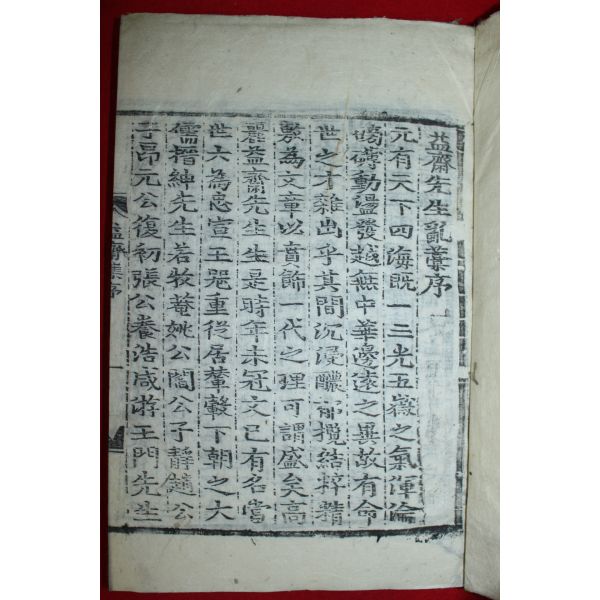 益齋先生亂藁序
元有天下四海旣一三光五嶽之氣渾淪
磅礴動盪發越無中華邊遠之異故有命
世之才雜出乎其間沉浸醲郁攬結粹精
敷為文章以賁飾一代之理可謂盛矣高
麗益齋先生生是時年未冠文已有名當
世大為忠宣王器重從居輦轂下朝之大
儒搢紳先生若牧菴姚公閻公子靜趙公
子昂元公復初張公養浩咸游王門先生
益齋集序
一